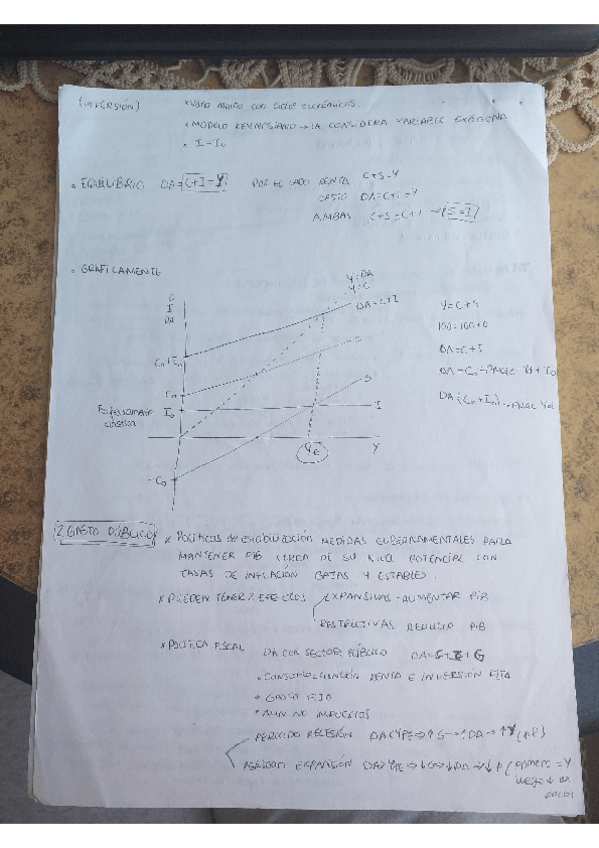 (INVERSIÓN)
× Varía mucho con ciclos económicos.
× MODELO KEYNESIANO → LA CONSIDERA VARIABLE EXÓGENA
• I = I₀
• EQUILIBRIO DA = C+I = Y POR EL LADO RENTA C+S=Y
GASTO DA=C+I=Y
AMBAS C+S=C+I → S=I
• GRÁFICAMENTE
C
I
DA
Y=DA
Y=C
DA=C+I
C₀+I₀
C
C₀
S
I₀
I
Y
YE
-C₀
Y=C+S
100=100+0
DA=C+I
2. GASTO PÚBLICO
× Políticas de estabilización. MEDIDAS GUBERNAMENTALES PARA
MANTENER PIB CERCA DE SU NIVEL POTENCIAL CON
TASAS DE INFLACIÓN BAJAS Y ESTABLES.
× PUEDEN TENER 2 EFECTOS
EXPANSIVAS - AUMENTAR PIB
RESTRICTIVAS REDUCIR PIB
× POLÍTICA FISCAL
DA CON SECTOR PÚBLICO DA=C+I+G
• CONSUMO FUNCIÓN RENTA E INVERSIÓN FIJA
• GASTO FIJO
• AUN NO IMPUESTOS
PERIODO RECESIÓN DA<YPE → ↑G → ↑DA → ↑Y
PERIODO EXPANSIÓN DA>YPE → ↓G → ↓DA → ↓P